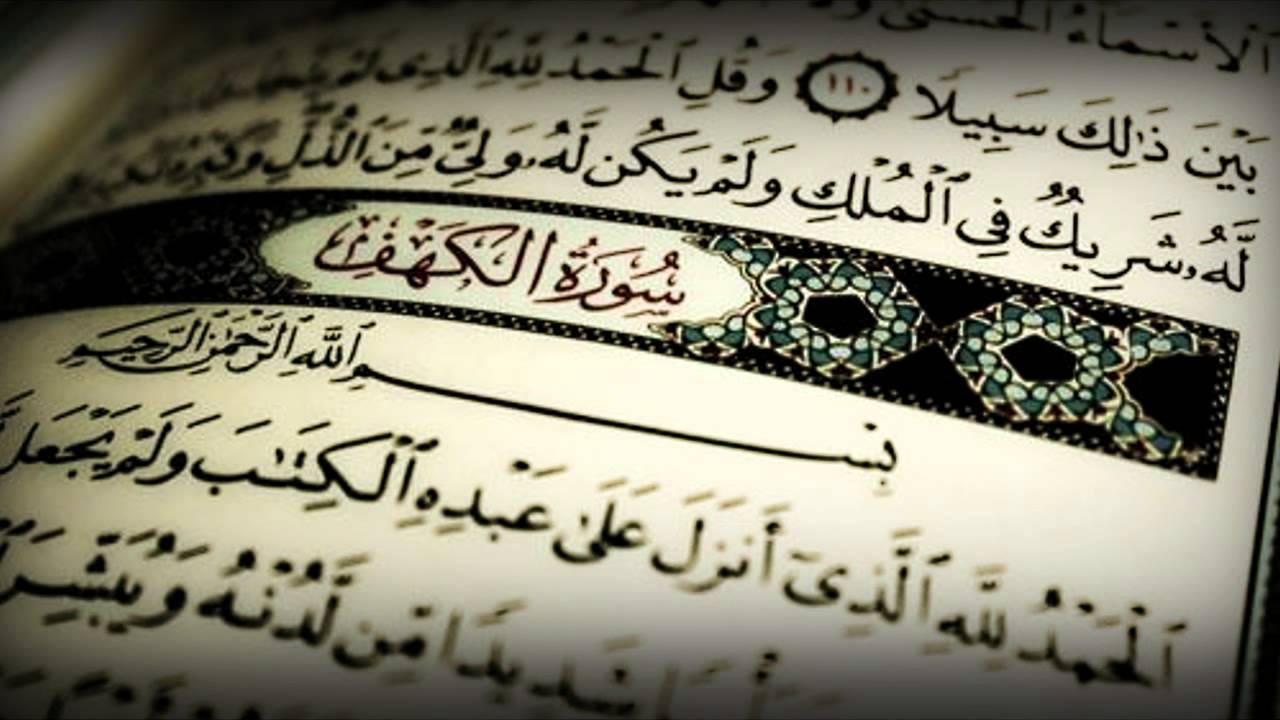 ٱلْأَسْمَآءُ ٱلْحُسْنَىٰ وَلَا
بَيْنَ ذَٰلِكَ سَبِيلًا ١١٠ وَقُلِ ٱلْحَمْدُ لِلَّهِ ٱلَّذِى لَمْ يَتَّخِذْ
لَّهُۥ شَرِيكٌ فِى ٱلْمُلْكِ وَلَمْ يَكُن لَّهُۥ وَلِىٌّ مِّنَ ٱلذُّلِّ وَكَبِّرْهُ تَكْبِيرًا
سُورَةُ الكَهْفِ
بِسْمِ ٱللَّهِ ٱلرَّحْمَٰنِ ٱلرَّحِيمِ
ٱلْحَمْدُ لِلَّهِ ٱلَّذِىٓ أَنزَلَ عَلَىٰ عَبْدِهِ ٱلْكِتَٰبَ وَلَمْ يَجْعَل
شَدِيدًا مِّن لَّدُنْهُ وَيُبَشِّرَ